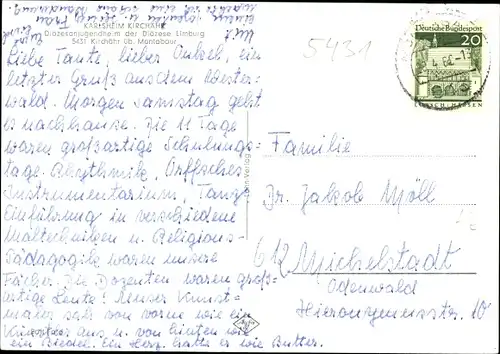 KARLSHEIM KIRCHÄHR
Diözesanjugendheim der Diözese Limburg
5431 Kirchähr üb. Montabaur
5431
Deutsche Bundespost
20
Liebe Tante, lieber Onkel, ein
letzter Gruß aus dem Wester-
wald. Morgen Samstag geht
es nachhause. Die 11 Tage
waren großartige Schulungs-
tage. Rhythmik, Orffsches
Instrumentarium, Tanz
Einführung in verschiedene
Maltechniken u. Religions-
Pädagogik waren unsere
Fächer. Die Dozenten waren groß-
artige Leute! Unser Kunst-
maler sah von vorne wie ein
Künstler aus u. von hinten wie
ein Biedel. Ein Herz hatte er wie Butter.
Familie
Dr. Jakob Möll
612 Michelstadt
Odenwald
Hieronymusstr. 10